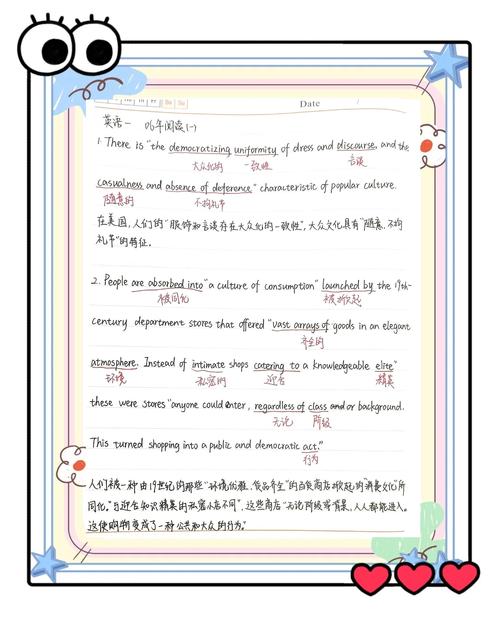 Date
英语一 06年阅读(一)
1. There is "the democratizing uniformity of dress and discourse, and the
大众化的 一致性 言谈
casualness and absence of deference" characteristic of popular culture.
随意的 不拘礼节
在美国,人们的"服饰和言谈存在大众化的一致性",大众文化具有"随意、不拘
礼节"的特征。
2. People are absorbed into "a culture of consumption" launched by the 19th-
被同化 被掀起
century department stores that offered "vast arrays of goods in an elegant
齐全的
atmosphere. Instead of intimate shops catering to a knowledgeable elite"
环境 私密的 迎合 精英
these were stores "anyone could enter, regardless of class and/or background.
无论 阶级
This turned shopping into a public and democratic act."
行为
人们被一种由19世纪的那些"环境优雅、货品齐全"的百货商店掀起的"消费文化"所
同化。"与迎合知识精英的私密小店不同",这些商店"无论阶级或背景,人人都能进入。
这使购物变成了一种公共和大众的行为。"